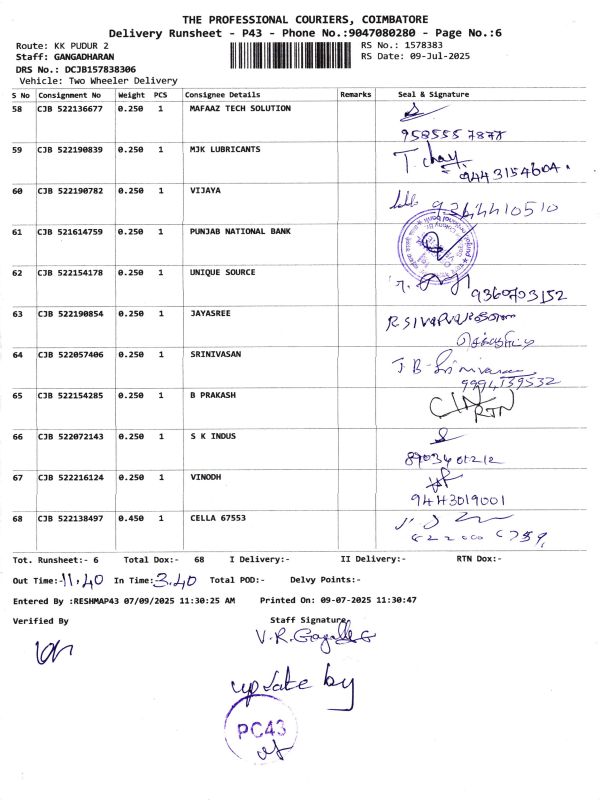 THE PROFESSIONAL COURIERS, COIMBATORE
Delivery Runsheet - P43 - Phone No.:9047080280 - Page No.:6
Route: KK PUDUR 2
RS No.: 1578383
Staff: GANGADHARAN
RS Date: 09-Jul-2025
DRS No.: DCJB157838306
Vehicle: Two Wheeler Delivery
S No Consignment No Weight PCS Consignee Details Remarks Seal & Signature
58 CJB 522136677 0.250 1 MAFAAZ TECH SOLUTION
59 CJB 522190839 0.250 1 MJK LUBRICANTS
9443154604.
60 CJB 522190782 0.250 1 VIJAYA
9364410510
61 CJB 521614759 0.250 1 PUNJAB NATIONAL BANK
62 CJB 522154178 0.250 1 UNIQUE SOURCE
9360703152
63 CJB 522190854 0.250 1 JAYASREE
64 CJB 522057406 0.250 1 SRINIVASAN
J. B. Srinivasan
9994139532
65 CJB 522154285 0.250 1 B PRAKASH
RTN
66 CJB 522072143 0.250 1 S K INDUS
67 CJB 522216124 0.250 1 VINODH
9443019001
68 CJB 522138497 0.450 1 CELLA 67553
Tot. Runsheet:- 6 Total Dox:- 68 I Delivery:- II Delivery:- RTN Dox:-
Out Time:-11.40 In Time:3.40 Total POD:- Delvy Points:-
Entered By :RESHMAP43 07/09/2025 11:30:25 AM Printed On: 09-07-2025 11:30:47
Verified By Staff Signature
V.R.
update by
PC43